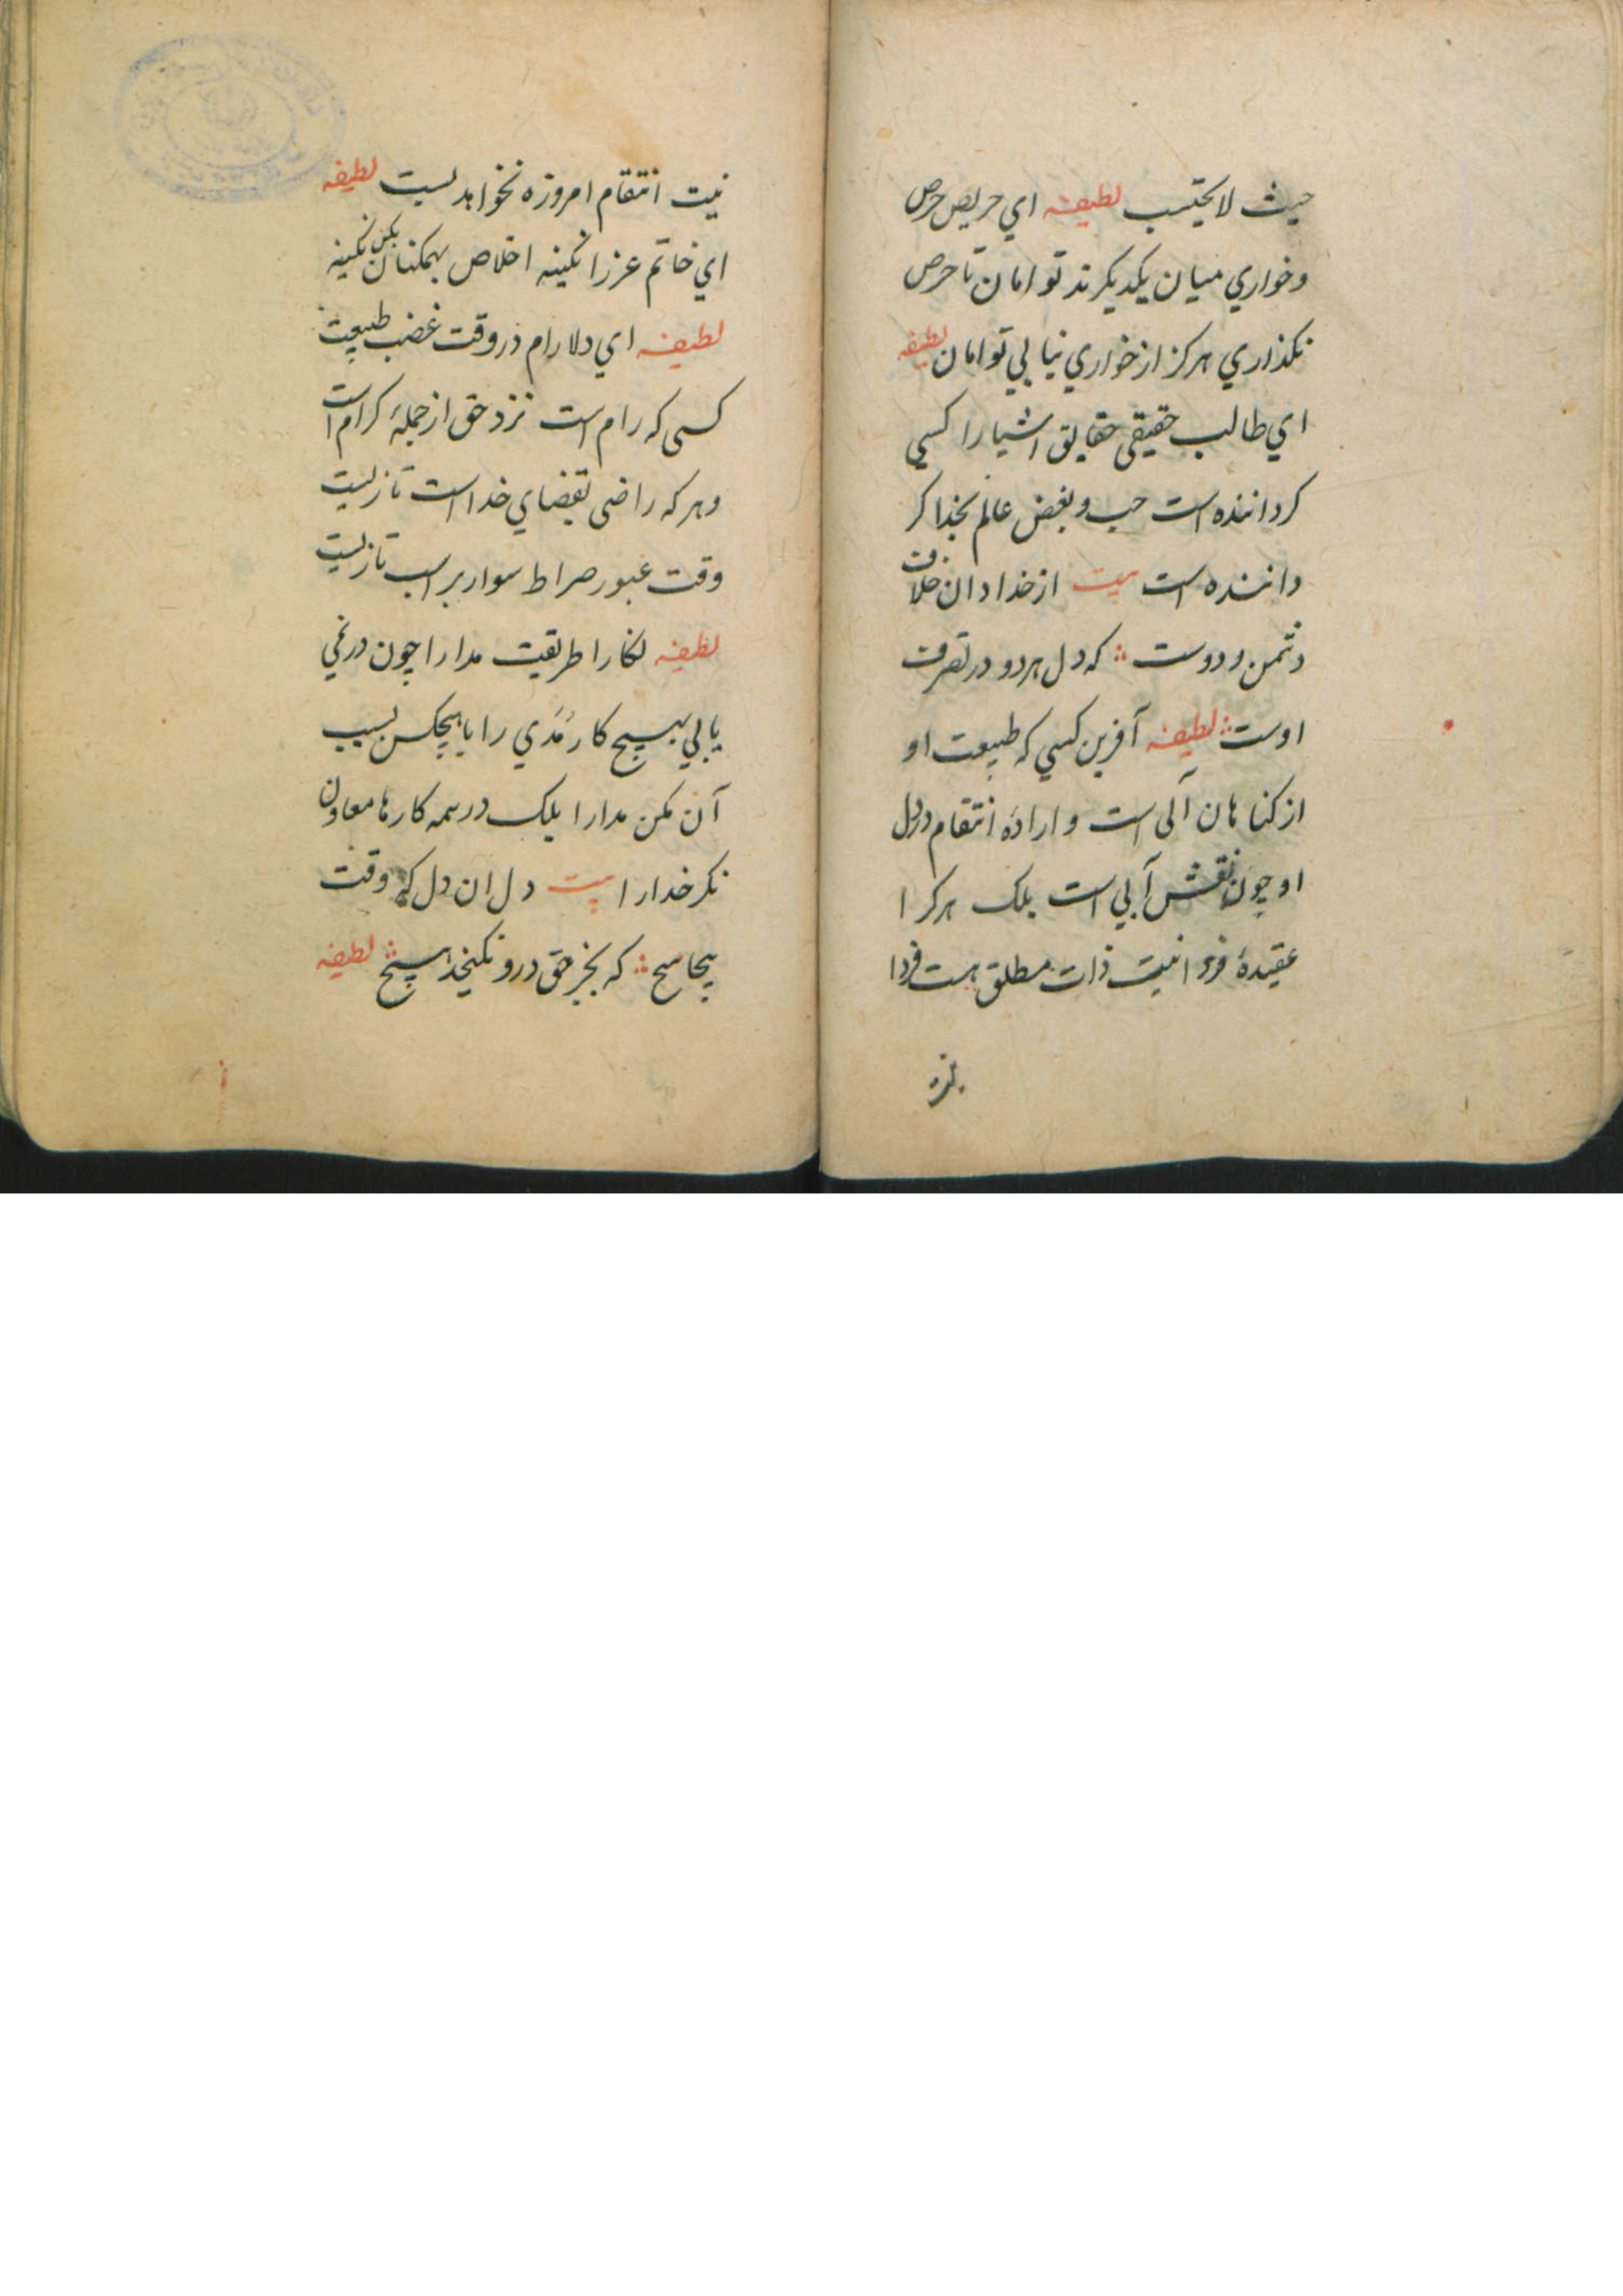 حيث لا يحتسب لطيفه اي حريص حرص
وخواري ميان يكديكرند تو امان تا حرص
نكذاري هركز از خواري نيابي تو امان لطيفه
اي طالب حقيقي حقايق اشيا را كسي
كرداننده است حب و بغض عالم بخدا كر
داننده است بيت از خدا دان خلاف
دشمن و دوست كه دل هر دو در تصرف
اوست لطيفه آفرين كسي كه طبيعت او
از كناهان آبي است و اراده انتقام در دل
او چون نقش آبي است بلك هركرا
عقيدهٔ فردانيت ذات مطلق هست فردا
نيت انتقام امروزه نخواهد بست لطيفه
اي خاتم عز را نكينه اخلاص بهمكنان بكن نكينه
لطيفه اي دلارام در وقت غضب طبيعت
كسي كه رام است نزد حق از جملهٔ كرام است
و هر كه راضي بقضاي خدا است تا زيست
وقت عبور صراط سوار بر اسب تازيست
لطيفه نكارا طريقت مدارا چون در نمي
يابي بهيچ كار مُدي را با هيچكس بسبب
آن مكن مدارا بلك در همه كارها معاون
نكر خدا را بيت دل ان دل كه وقت
پيچاپيچ كه بجز حق درو نكنجد هيچ لطيفه